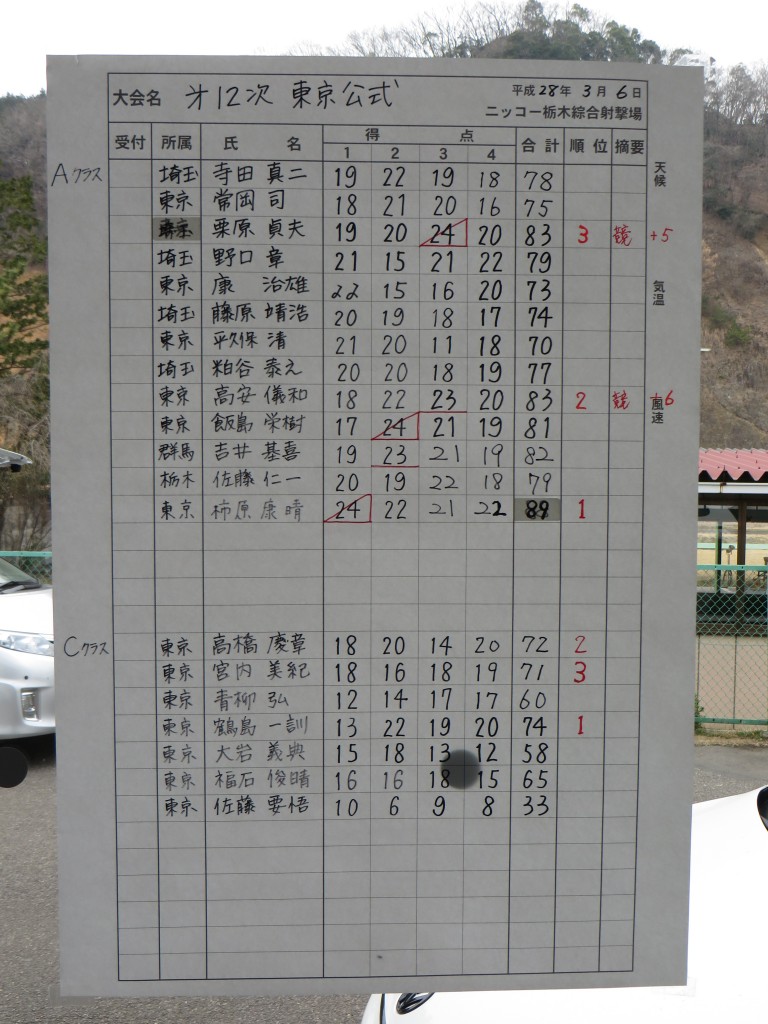 大会名 才12次 東京公式 平成28年 3月 6日
ニッコー栃木綜合射撃場
受付 所属 氏 名 得 点 合計 順位 摘要
1 2 3 4
天候
Aクラス 埼玉 寺田 真二 19 22 19 18 78
東京 常岡 司 18 21 20 16 75
東京 栗原 貞夫 19 20 24 20 83 3 競 +5
埼玉 野口 章 21 15 21 22 79
気温
東京 康 治雄 22 15 16 20 73
埼玉 藤原 靖浩 20 19 18 17 74
東京 平久保 清 21 20 11 18 70
埼玉 粕谷 泰之 20 20 18 19 77
東京 高安 儀和 18 22 23 20 83 2 競 6
風速
東京 飯島 栄樹 17 24 21 19 81
群馬 吉井 基喜 19 23 21 19 82
栃木 佐藤 仁一 20 19 22 18 79
東京 柿原 康晴 24 22 21 22 89 1
Cクラス 東京 高橋 慶章 18 20 14 20 72 2
東京 宮内 美紀 18 16 18 19 71 3
東京 青柳 弘 12 14 17 17 60
東京 鶴島 一訓 13 22 19 20 74 1
東京 大岩 義典 15 18 13 12 58
東京 福石 俊晴 16 16 18 15 65
東京 佐藤 要悟 10 6 9 8 33